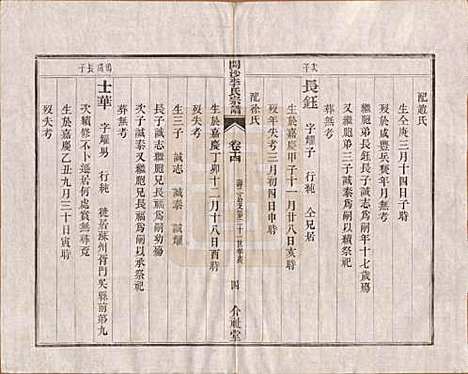 配趙氏
生仝庚三月十四日子時
歿咸豐兵燹年月無考
繼胞弟長鈺長子誠志爲嗣年十七歲殤
又繼胞弟三子誠泰爲嗣以續祭祀
葬無考
次子
長鈺 字耀子 行純 仝兄居
生於嘉慶甲子十一月廿八日亥時
歿年失考三月初四日申時
配徐氏
開沙李氏宗譜
卷之四
四 介祉堂
生於嘉慶丁卯十二月十八日酉時
歿失考
生三子 誠志 誠泰 誠耀
長子誠志繼胞兄長福爲嗣幼殤
次子誠泰又繼胞兄長福爲嗣以承祭祀
葬無考
長子
士華 字耀男 行純 徙居蘇州胥門吳縣前第九
家內卜卦居何處無尋覓
生於嘉慶乙丑九月三十日寅時
歿失考